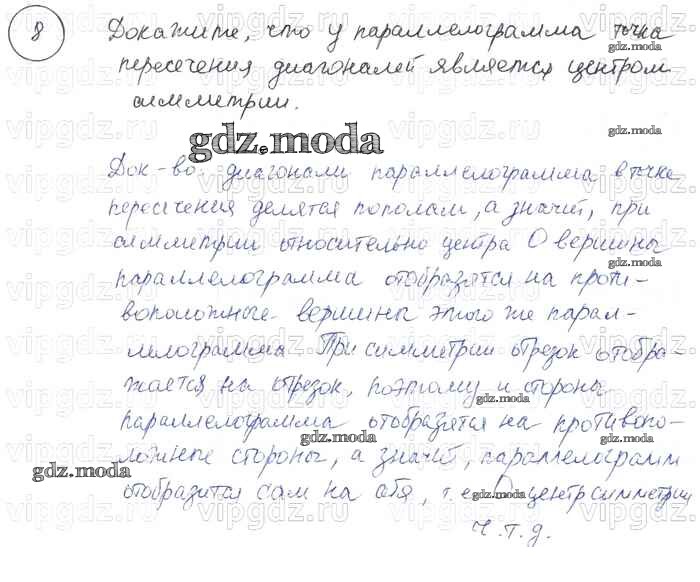 8 Докажите, что у параллелограмма точка
пересечения диагоналей является центром
симметрии.
gdz.moda
Док-во. диагонали параллелограмма в точке
пересечения делятся пополам, а значит, при
симметрии относительно центра О вершины
параллелограмма отобразятся на проти-
воположные вершины этого же парал-
лелограмма. При симметрии отрезок отобра-
жается на отрезок, поэтому и стороны
параллелограмма отобразятся на противопо-
ложные стороны, а значит, параллелограмм
отобразится сам на себя, т.е. О центр симметрии
ч.т.д.
gdz.moda
gdz.moda
gdz.moda
gdz.moda
gdz.moda
gdz.moda
gdz.moda
gdz.moda
vipgdz.ru